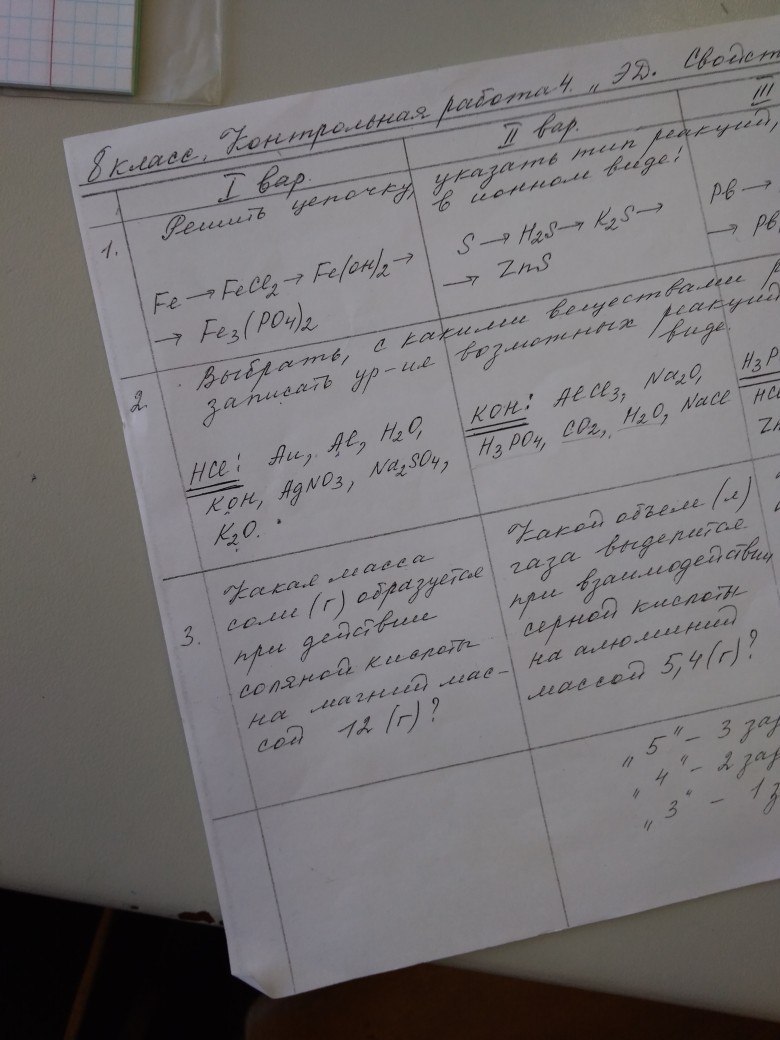 8 класс. Контрольная работа 4. „ЭД. Свойст
I вар.
II вар.
III
1.
Решить цепочку, указать тип реакций,
в ионном виде:
Fe → FeCl2 → Fe(OH)2 →
→ Fe3(PO4)2
S → H2S → K2S →
→ ZnS
Pb →
→ Pb
2.
Выбрать, с какими веществами р
записать ур-ие возможных реакций
виде.
HCl: Au, Al, H2O,
KOH, AgNO3, Na2SO4,
K2O.
KOH: AlCl3, Na2O,
H3PO4, CO2, H2O, NaCl
H3P
HCl
Zn
3.
Какая масса
соли (г) образуется
при действии
соляной кислоты
на магний мас-
сой 12 (г)?
Какой объем (л)
газа выделится
при взаимодействии
серной кислоты
на алюминий
массой 5,4 (г)?
„5" – 3 зад
„4" – 2 зад
„3" – 1 з